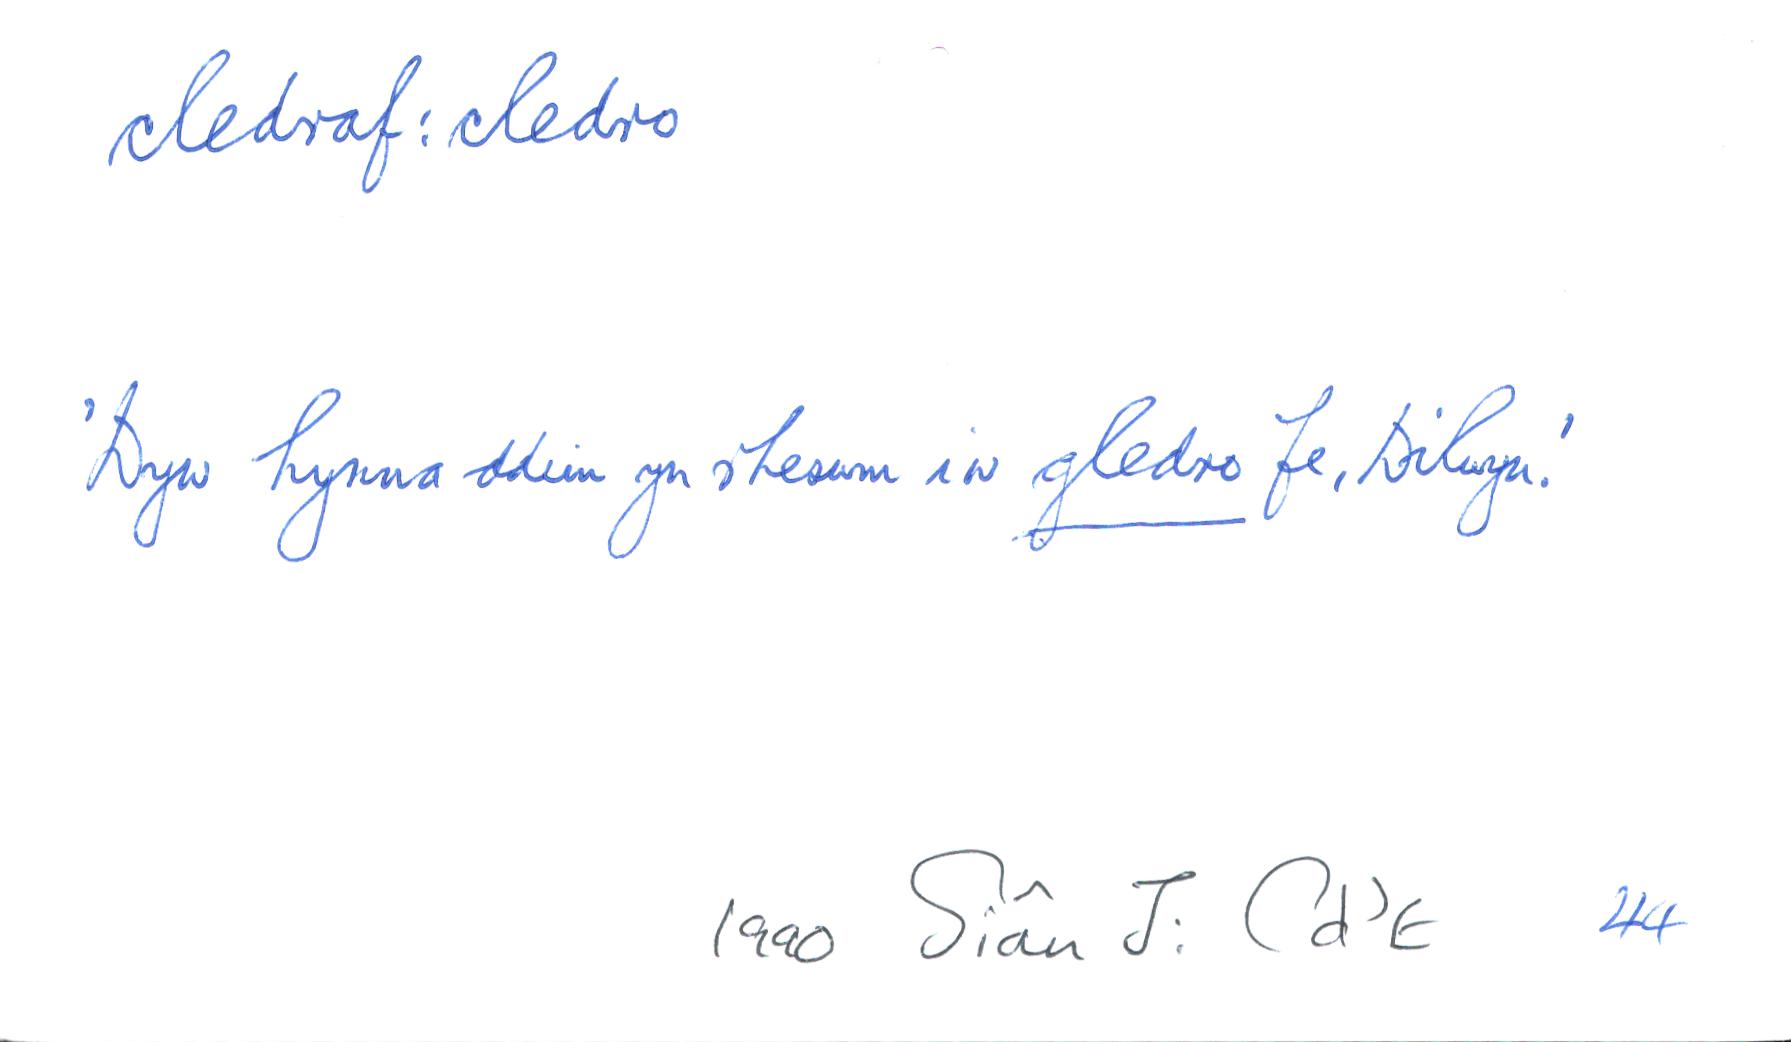 cledraf: cledro
'Dyw hynna ddim yn rheswm iw gledro fe, Dilwyn.'
1990 Siân J: Cd'E 44